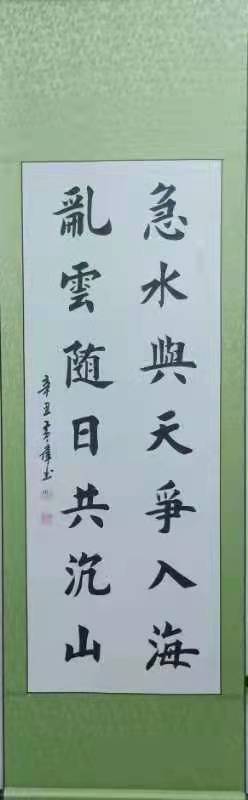 急水與天爭入海
亂雲随日共沉山
辛丑春華书